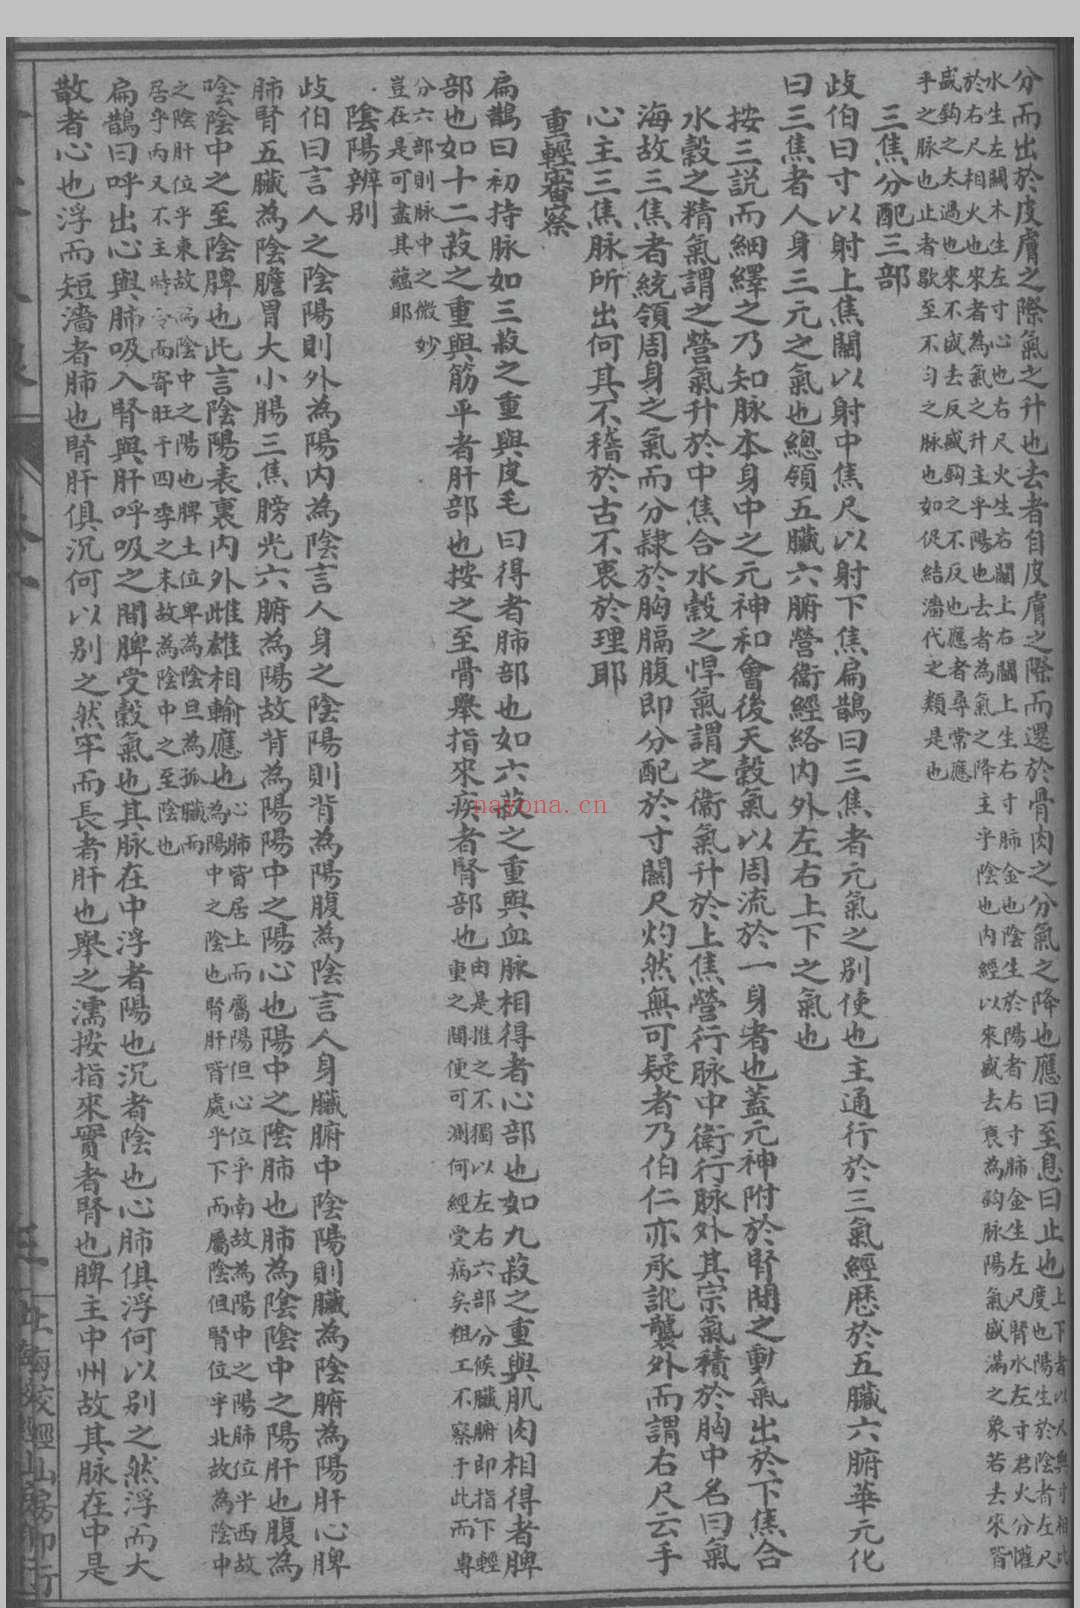 分而出於皮膚之際氣之升也去者自皮膚之際而還於骨肉之分氣之降也應曰至息曰止也
水生左關木生左寸心也右尺火生右關上右關上生右寸肺金也陰生於陽者右寸肺金生左尺腎水左寸君火分
於右尺相火也來者為氣之升主乎陽也去者為氣之降主乎陰也內經以來盛去衰為鈎脉陽氣盛滿之象若去來皆
盛鈎之太過也來不盛去反盛鈎之不反也應者尋常應
乎之脉也止者歇至不勻之脉也如促結濇代之類是也
三焦分配三部
歧伯曰寸以射上焦關以射中焦尺以射下焦扁鵲曰三焦者元氣之別使也主通行於三氣經歷於五臟六腑華元化
曰三焦者人身三元之氣也總領五臟六腑營衞經絡內外左右上下之氣也
按三説而細繹之乃知脉本身中之元神和會後天穀氣以周流於一身者也蓋元神附於腎間之動氣出於下焦合
水穀之精氣謂之營氣升於中焦合水穀之悍氣謂之衞氣升於上焦營行脉中衞行脉外其宗氣積於胸中名曰氣
海故三焦者統領周身之氣而分隸於胸膈腹即分配於寸關尺灼然無可疑者乃伯仁亦承訛襲外而謂右尺云手
心主三焦脉所出何其不稽於古不衷於理耶
重輕審察
扁鵲曰初持脉如三菽之重與皮毛曰得者肺部也如六菽之重與血脉相得者心部也如九菽之重與肌肉相得者脾
部也如十二菽之重與筋平者肝部也按之至骨舉指來疾者腎部也由是推之不獨以左右六部分候臟腑即指下輕
重之間便可測何經受病矣粗工不察于此而專
分六部則脉中之微妙
豈在是可盡其蘊耶
陰陽辨別
歧伯曰言人之陰陽則外為陽內為陰言人身之陰陽則背為陽腹為陰言人身臟腑中陰陽則臟為陰腑為陽肝心脾
肺腎五臟為陰膽胃大小腸三焦膀光六腑為陽故背為陽陽中之陽心也陽中之陰肺也肺為陰陰中之陽肝也腹為
陰陰中之至陰脾也此言陰陽表裏內外雌雄相輸應也心肺皆居上而屬陽但心位乎南故為陽中之陽肺位乎西故
為陽中之陰也腎肝皆處乎下而屬陰但腎位乎北故為陰中
之陰肝位乎東故為陰中之陽也脾土位卑為陰旦為孤臟而
居乎內又不主時令而寄旺于四季之末故為陰中之至陰也
扁鵲曰呼出心與肺吸入腎與肝呼吸之間脾受穀氣也其脉在中浮者陽也沉者陰也心肺俱浮何以別之然浮而大
散者心也浮而短濇者肺也腎肝俱沉何以別之然牢而長者肝也舉之濡按指來實者腎也脾主中州故其脉在中是
上海校經山房印行
nayona.cn